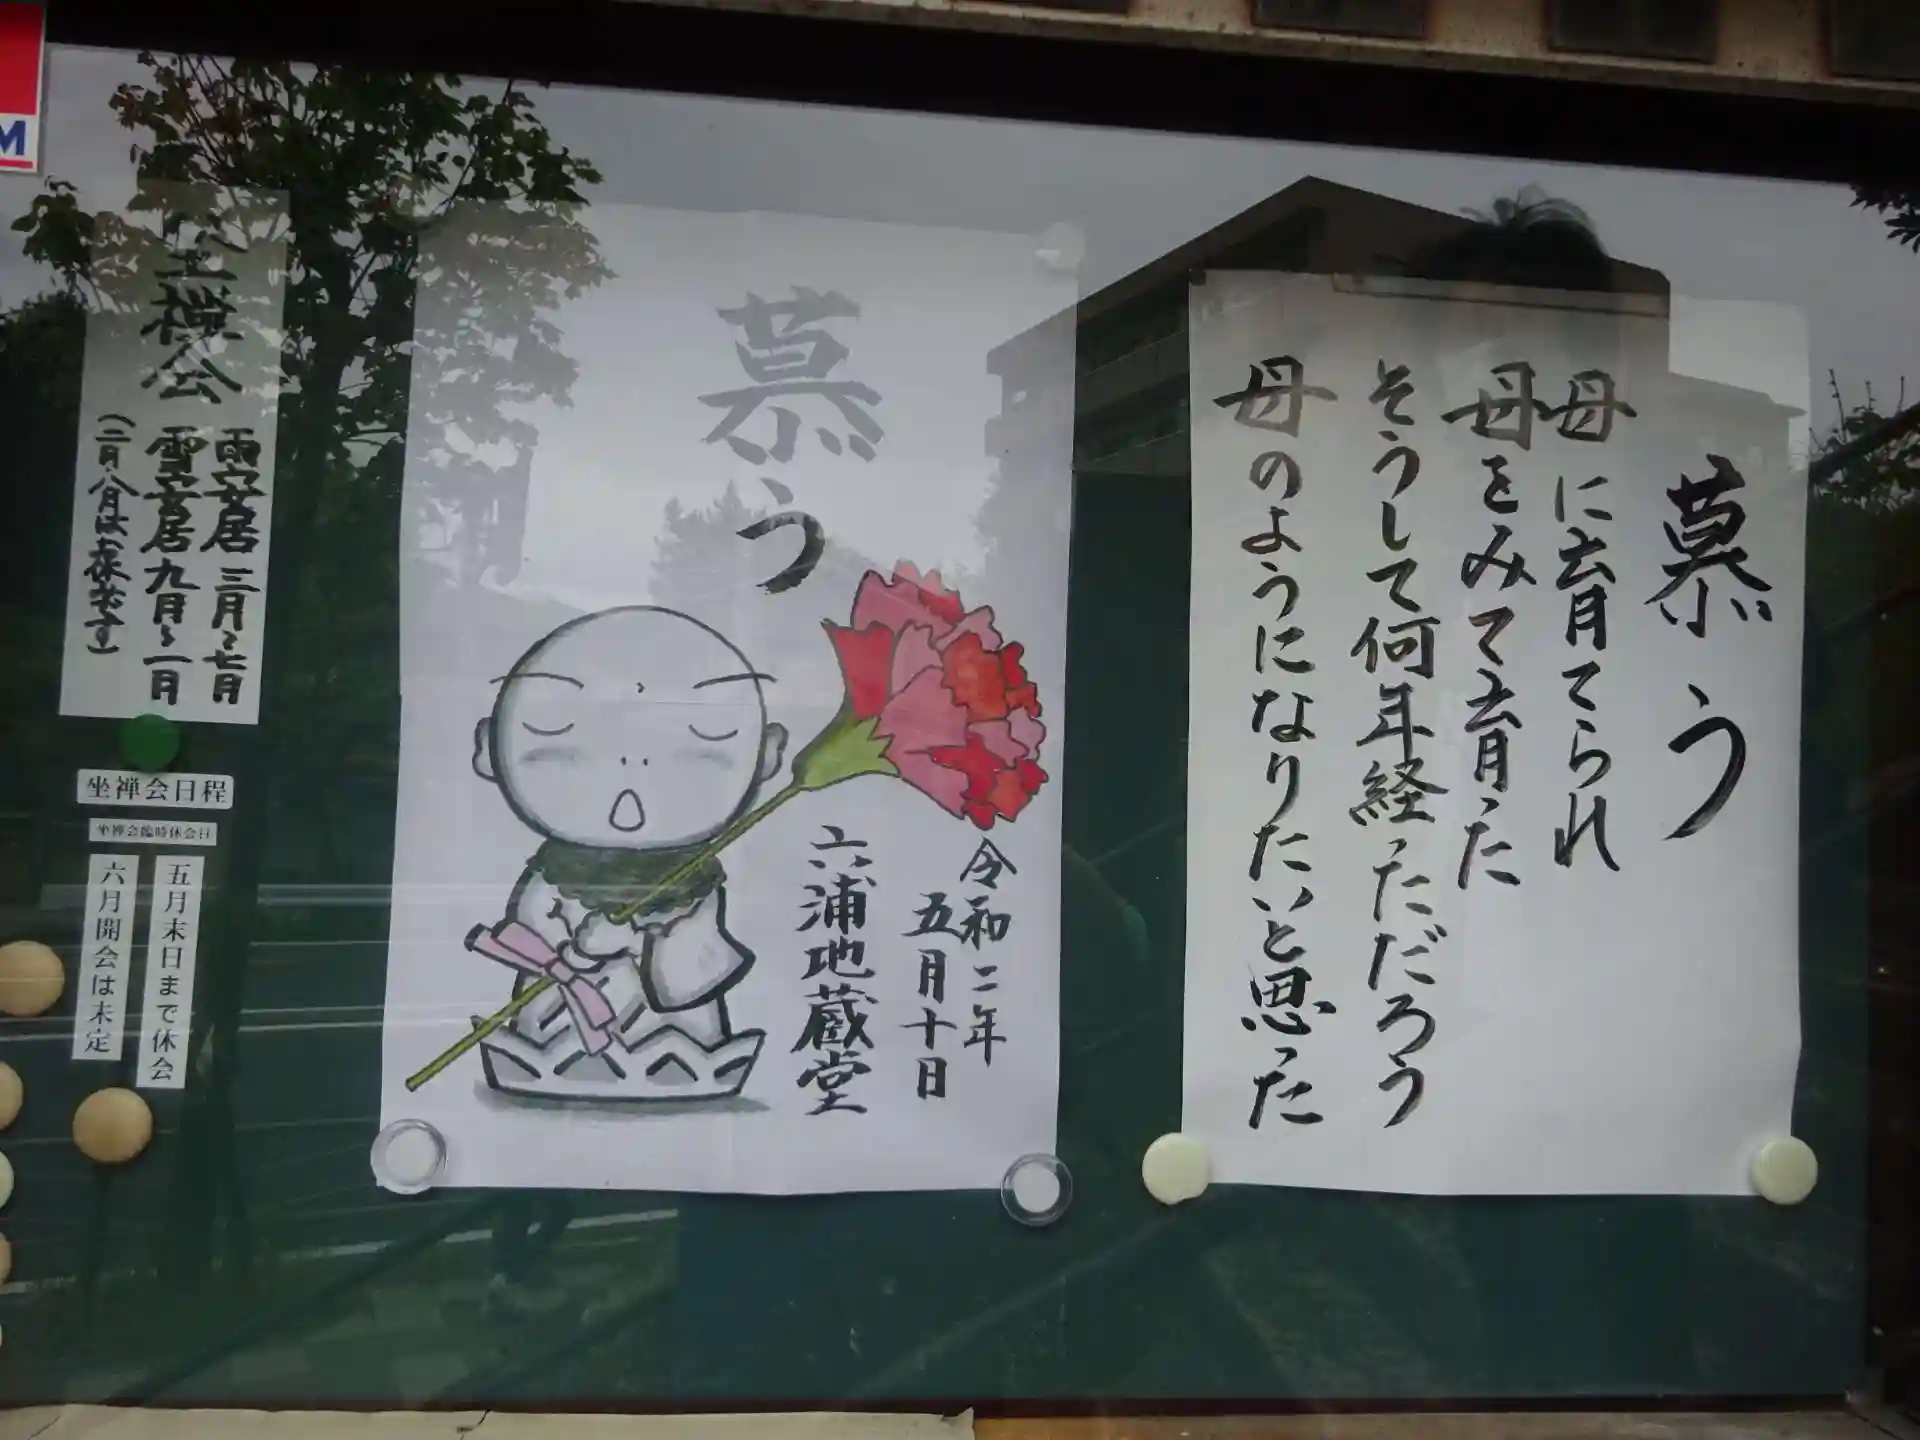 慕う
母に育てられ
母をみて育った
そうして何年経っただろう
母のようになりたいと思った
慕う
令和二年
五月十日
六浦地蔵堂
坐禅会
雨安居 三月〜七月
雪安居 九月〜一月
(二月・八月はお休みです)
坐禅会日程
坐禅会臨時休会日
五月末日まで休会
六月開会は未定
M